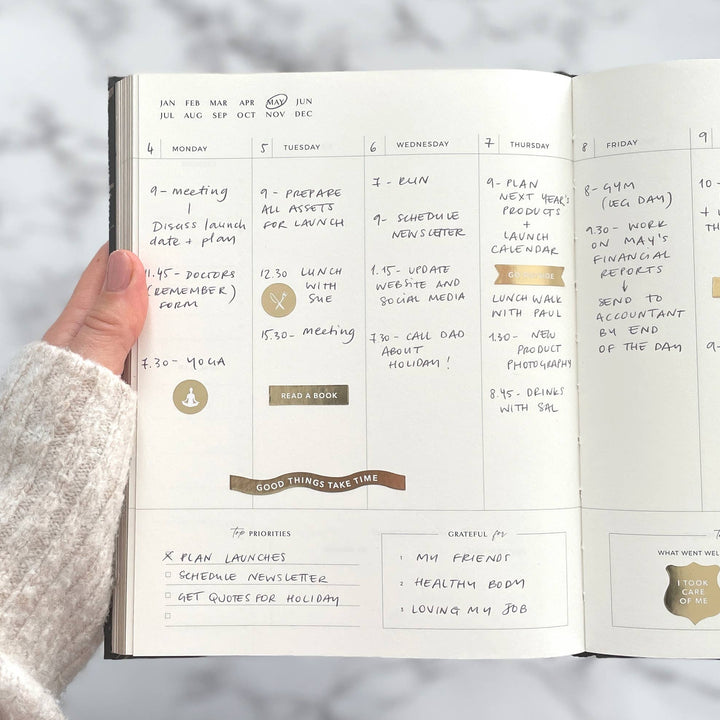 JAN FEB MAR APR MAY JUN
JUL AUG SEP OCT NOV DEC
4 MONDAY
9 - meeting
Disuss launch
date + plan
11.45 - DOCTORS
(REMEMBER)
FORM
7.30 - YOGA
5 TUESDAY
9 - PREPARE
ALL ASSETS
FOR LAUNCH
12.30 LUNCH
WITH
SUE
15.30 - meeting
READ A BOOK
GOOD THINGS TAKE TIME
6 WEDNESDAY
7 - RUN
9 - SCHEDULE
NEWSLETTER
1.15 - UPDATE
WEBSITE AND
SOCIAL MEDIA
7.30 - CALL DAD
ABOUT
HOLIDAY!
7 THURSDAY
9 - PLAN
NEXT YEAR'S
PRODUCTS
+
LAUNCH
CALENDAR
GO
LUNCH WALK
WITH PAUL
1.30 - NEW
PRODUCT
PHOTOGRAPHY
8.45 - DRINKS
WITH SAL
8 FRIDAY
8 - GYM
(LEG DAY)
9.30 - WORK
ON MAY'S
FINANCIAL
REPORTS
↓
SEND TO
ACCOUNTANT
BY END
OF THE DAY
9
10 -
+
TH
9 -
top PRIORITIES
PLAN LAUNCHES
SCHEDULE NEWSLETTER
GET QUOTES FOR HOLIDAY
GRATEFUL for
1 MY FRIENDS
2 HEALTHY BODY
3 LOVING MY JOB
WHAT WENT WEL
I TOOK
CARE
OF ME